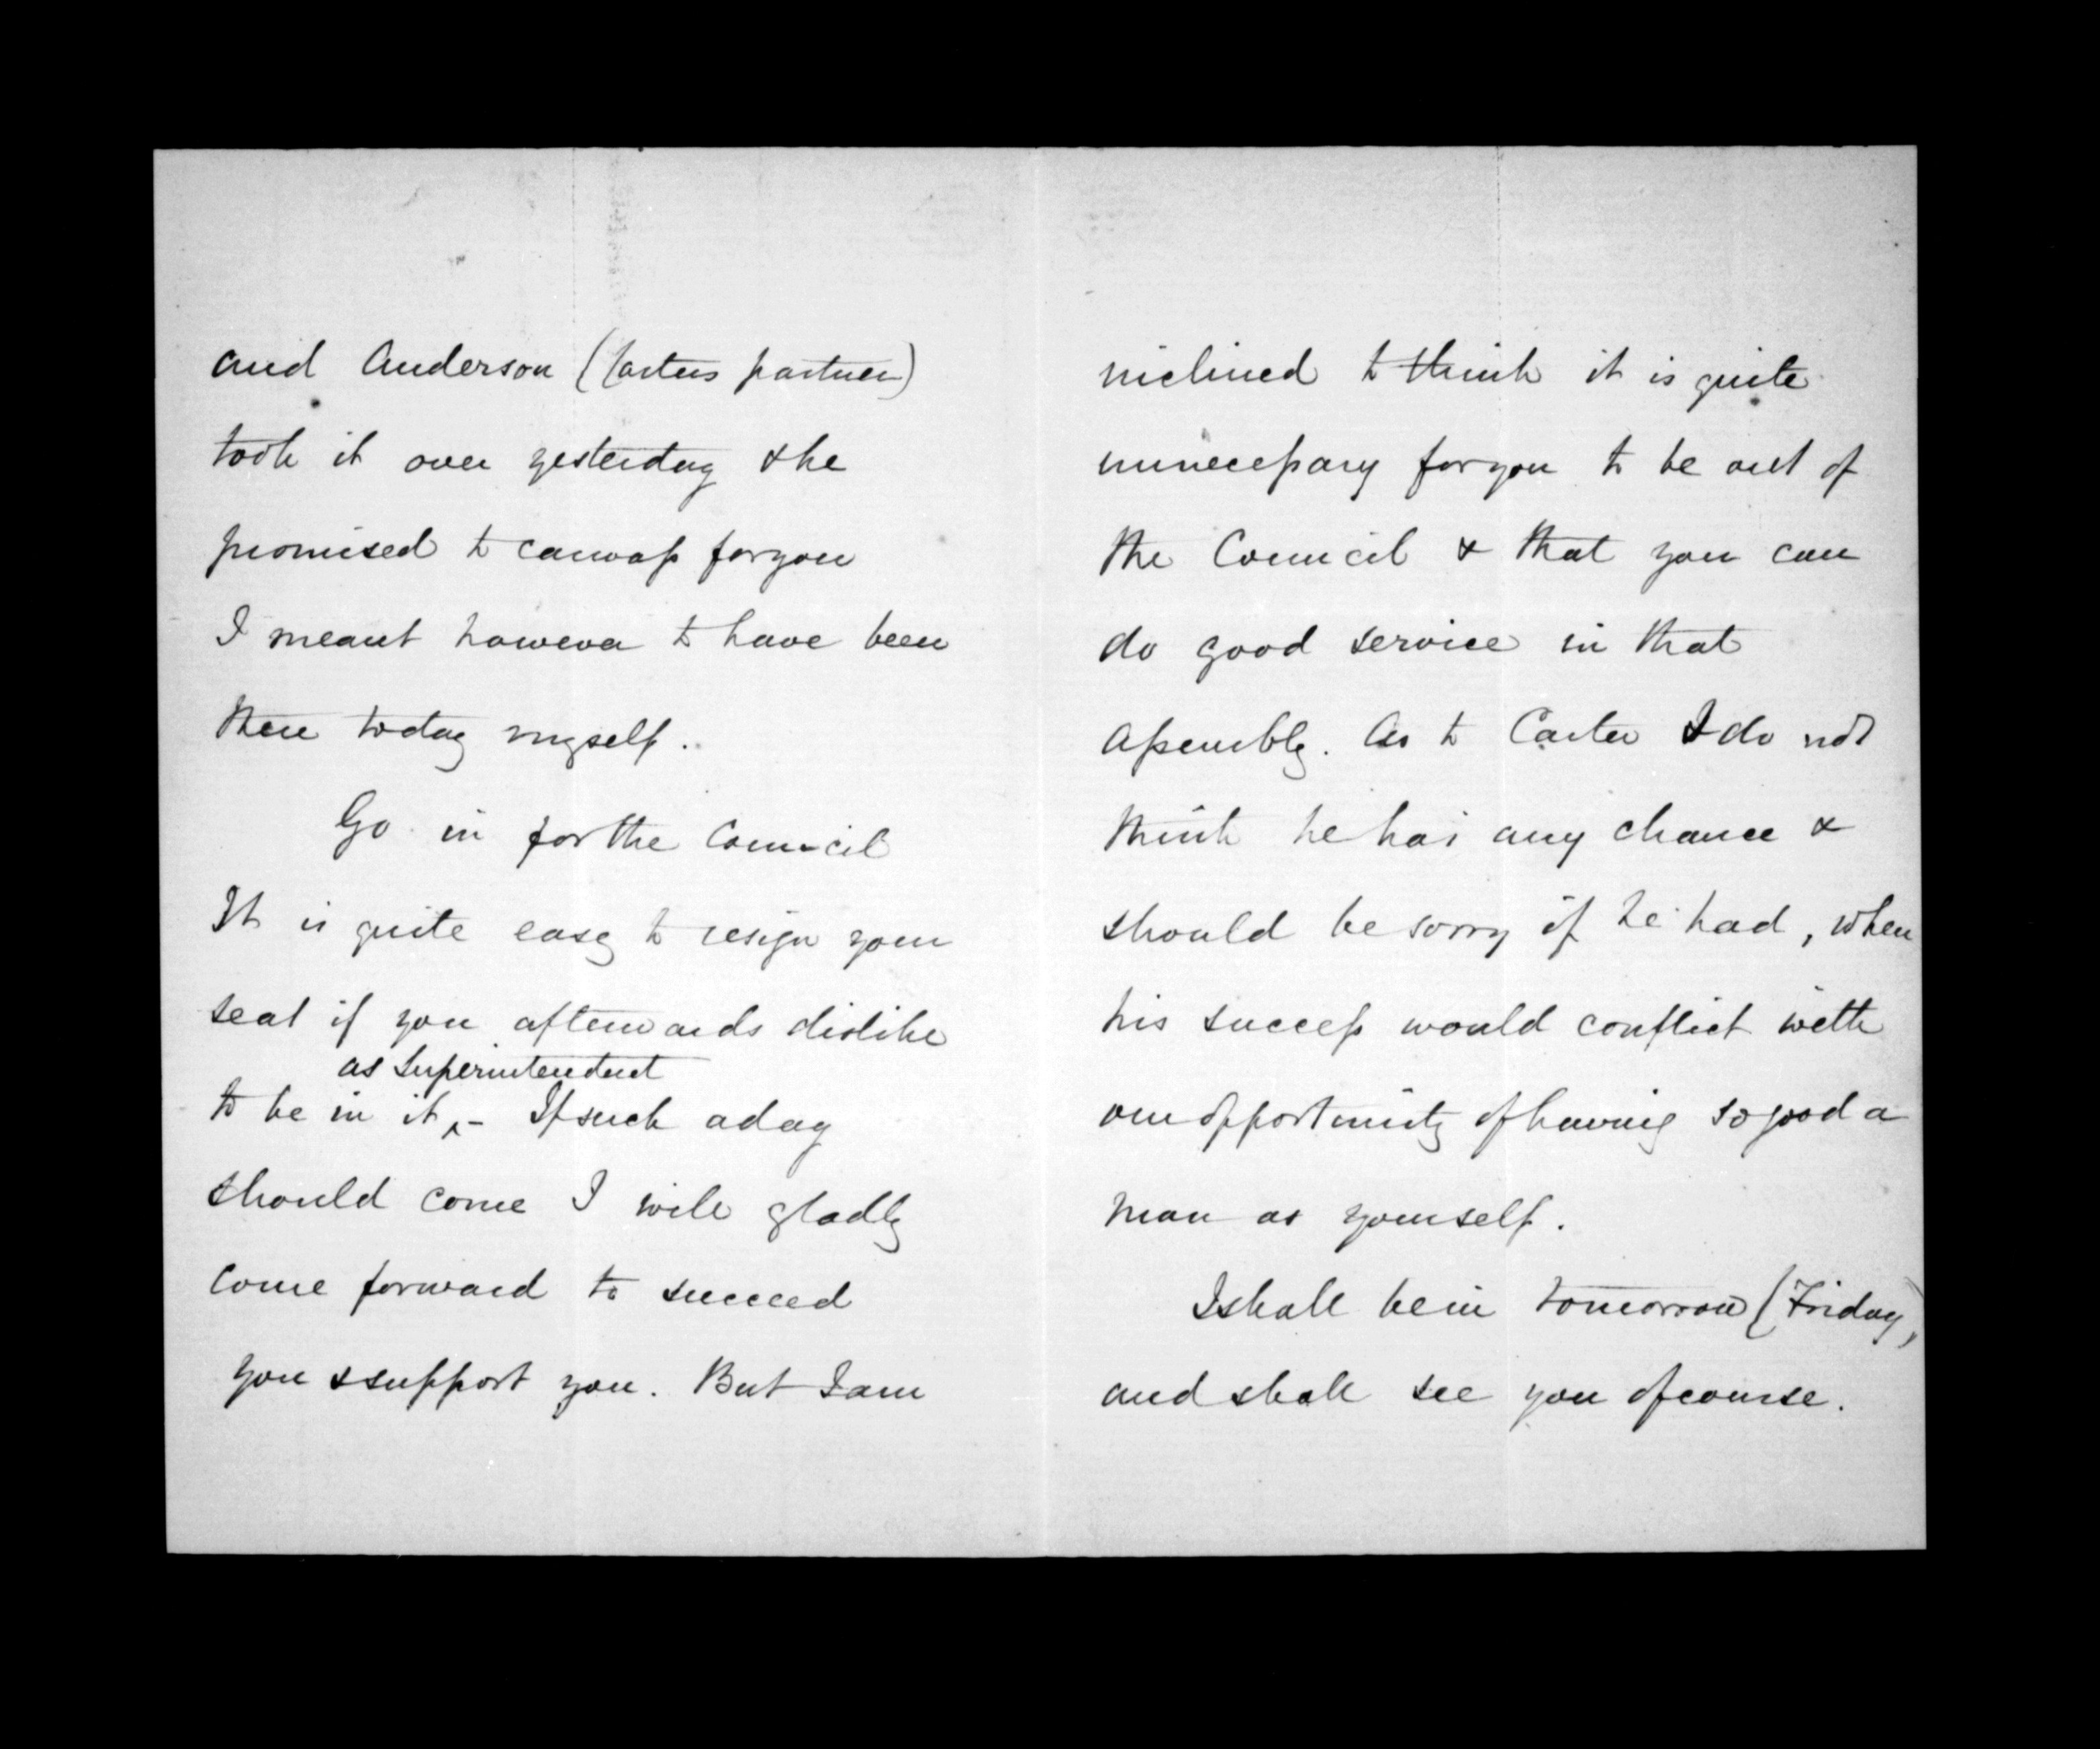 and Anderson (Carters partner)
took it over yesterday & he
promised to canvass for you
I meant however to have been
there today myself.
Go in for the Council
It is quite easy to resign your
seat if you afterwards dislike
as Superintendent
to be in it ^ - If such a day
should come I will gladly
come forward to succeed
you & support you. But I am
inclined to think it is quite
unnecessary for you to be out of
the Council & that you can
do good service in that
Assembly. As to Carter I do not
think he has any chance &
should be sorry if he had, when
his success would conflict with
our opportunity of having so good a
man as yourself.
I shall be in tomorrow (Friday)
and shall see you of course.